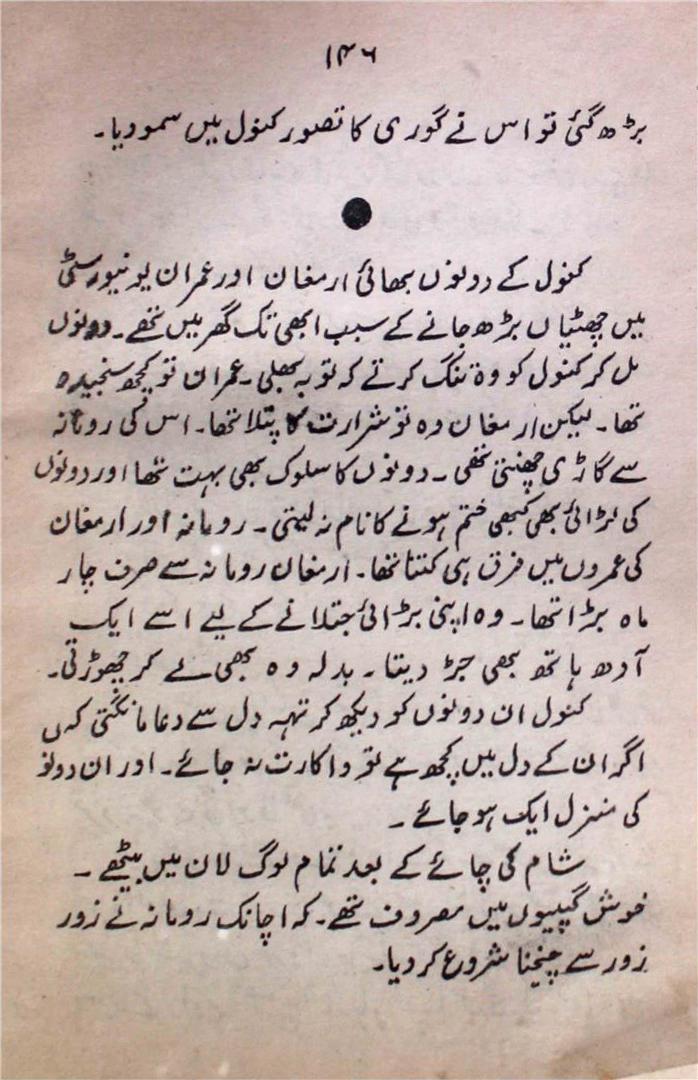 ۱۴۶
بڑھ گئی تو اس نے گوری کا تصور کنول میں سمو دیا۔
کنول کے دونوں بھائی ارمغان اور عمران یونیورسٹی
میں چھٹیاں بڑھ جانے کے سبب ابھی تک گھر میں تھے۔ دونوں
مل کر کنول کو وہ تنگ کرتے کہ توبہ بھلی۔ عمران تو کچھ سنجیدہ
تھا۔ لیکن ارمغان وہ تو شرارت کا پتلا تھا۔ اس کی رومانہ
سے گاڑی چھنتی تھی۔ دونوں کا سلوک بھی بہت تھا اور دونوں
کی لڑائی بھی کبھی ختم ہونے کا نام نہ لیتی۔ رومانہ اور ارمغان
کی عمروں میں فرق ہی کتنا تھا۔ ارمغان رومانہ سے صرف چار
ماہ بڑا تھا۔ وہ اپنی بڑائی جتلانے کے لیے اسے ایک
آدھ ہاتھ بھی جڑ دیتا۔ بدلہ وہ بھی لے کر چھوڑتی۔
کنول ان دونوں کو دیکھ کر تہہ دل سے دعا مانگتی کہ
اگر ان کے دل میں کچھ ہے تو واکارت نہ جائے۔ اور ان دونو
کی منزل ایک ہو جائے۔
شام کی چائے کے بعد تمام لوگ لان میں بیٹھے۔
خوش گپیوں میں مصروف تھے۔ کہ اچانک رومانہ نے زور
زور سے چیخنا شروع کر دیا۔